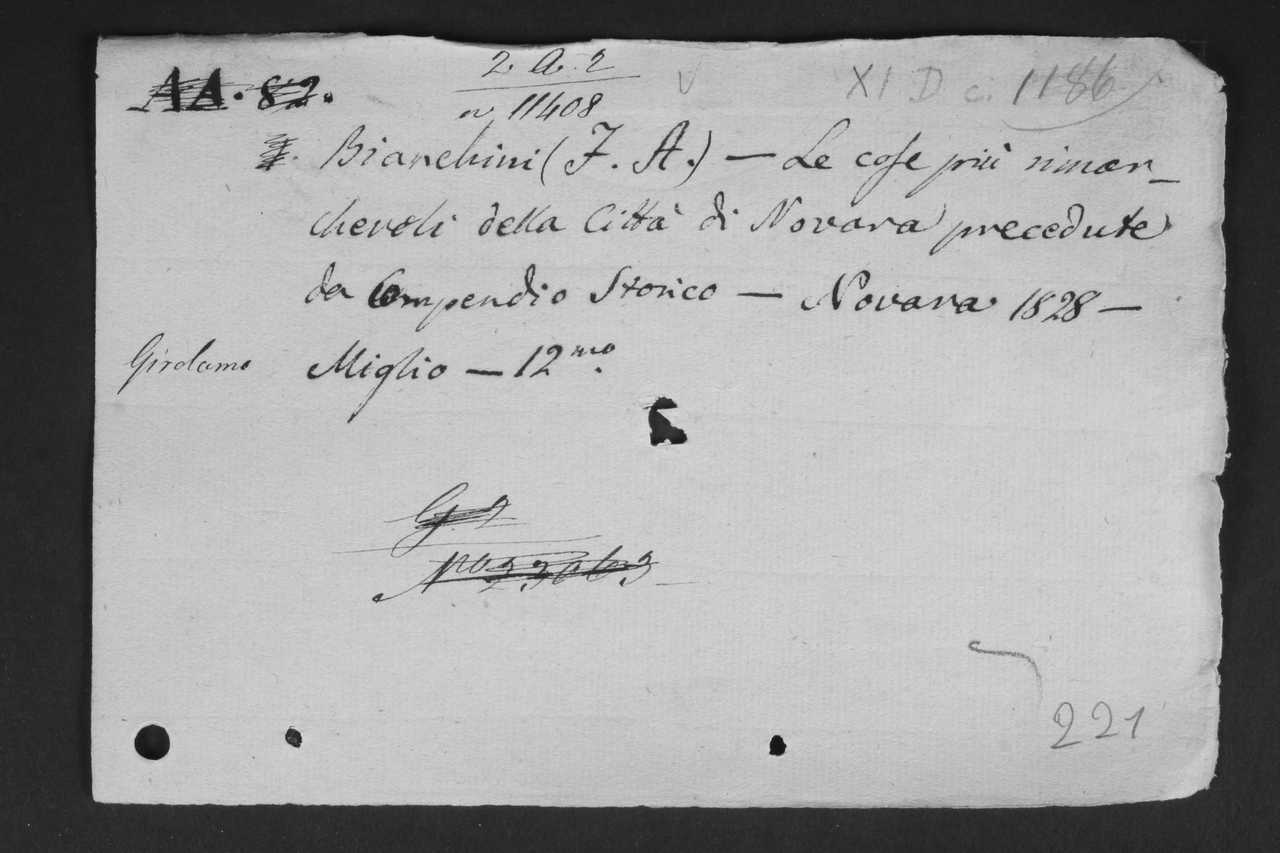 2. A. 2
AA. 82.
n. 11408
V
XI D c. 1186
Bianchini (F. A.) — Le cose più rimar-
chevoli della Città di Novara precedute
da Compendio Storico — Novara 1828 —
Girolamo Miglio — 12.mo
G. 2
No 23063
221